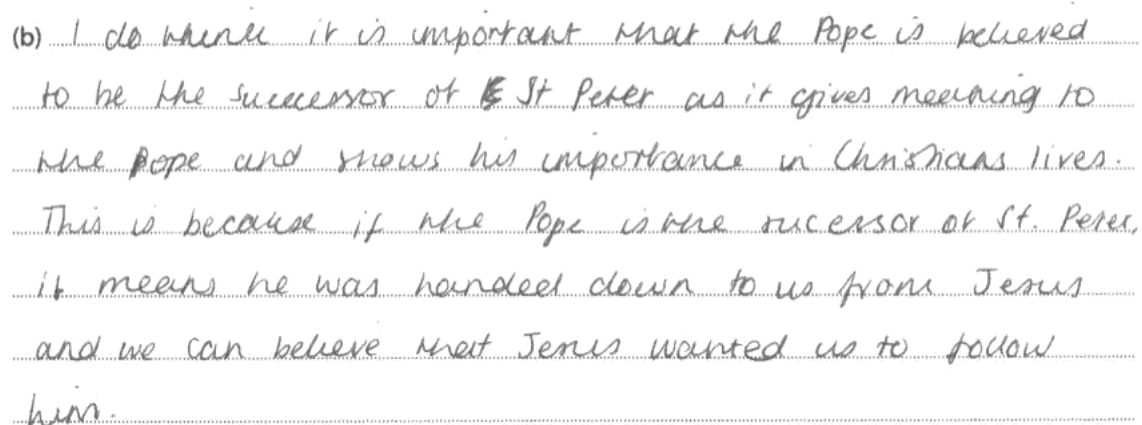 (b) I do think it is important that the Pope is believed
to be the successor of St Peter as it gives meaning to
the Pope and shows his importance in Christians lives.
This is because if the Pope is the sucessor of St. Peter,
it means he was handed down to us from Jesus
and we can believe that Jesus wanted us to follow
him.